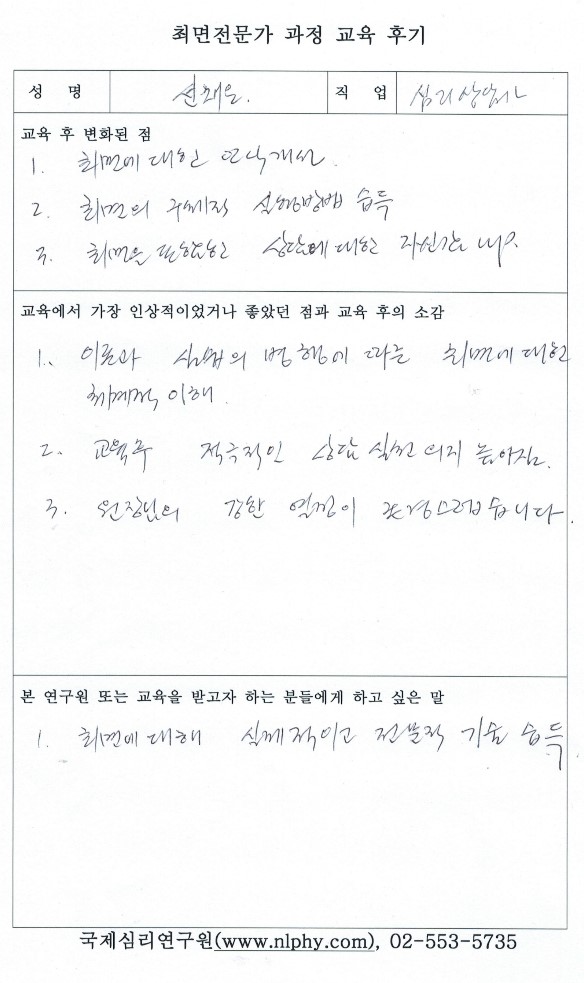 최면전문가 과정 교육 후기
성 명 선채은. 직 업 심리상담사
교육 후 변화된 점
1. 최면에 대한 인식개선.
2. 최면의 구체적 실행방법 습득
3. 최면을 포함한 상담에 대한 자신감 up.
교육에서 가장 인상적이었거나 좋았던 점과 교육 후의 소감
1. 이론과 실습의 병행에 따른 최면에 대한
체계적 이해.
2. 교육후 적극적인 상담 실천 의지 높아짐.
3. 원장님의 강한 열정이 존경스럽습니다.
본 연구원 또는 교육을 받고자 하는 분들에게 하고 싶은 말
1. 최면에 대해 실제적이고 전문적 기술 습득
국제심리연구원(www.nlphy.com), 02-553-5735